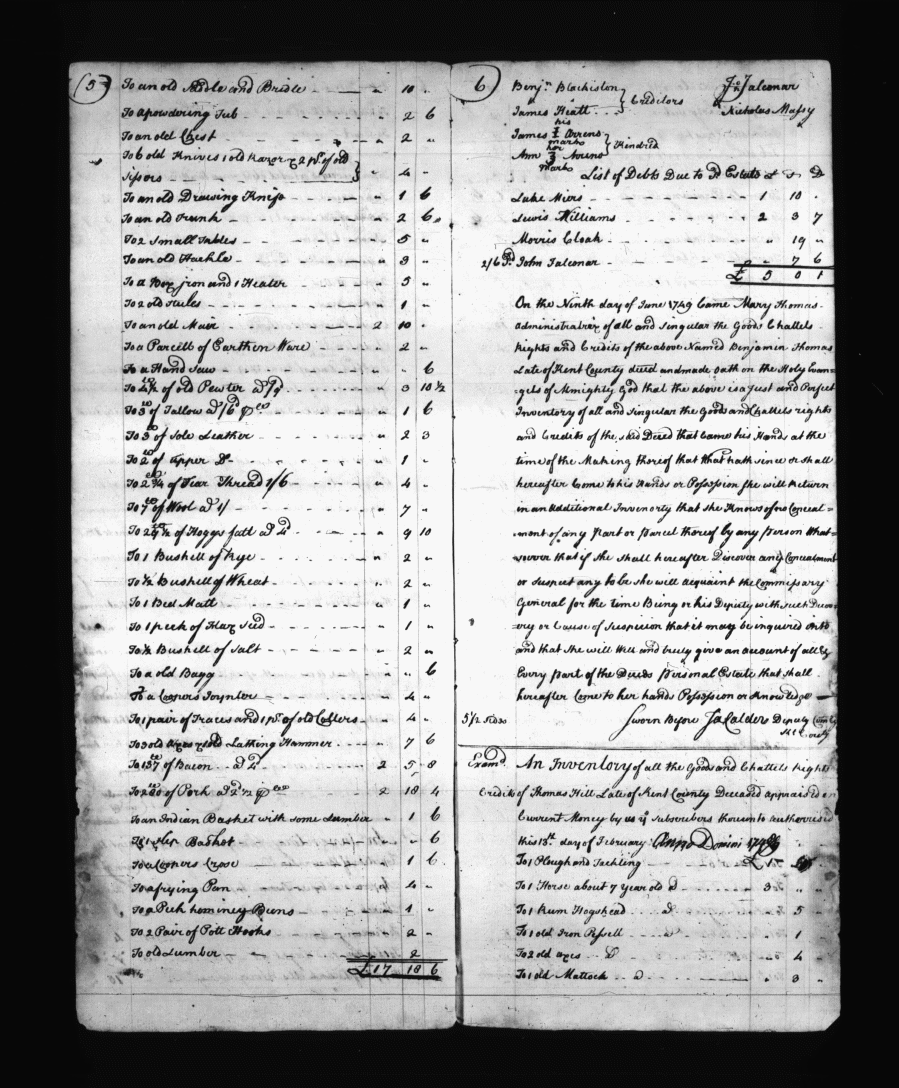 5
To an old Saddle and Bridle " 10 "
To a powdering Tub " 2 6
To an old Chest " 2 "
To 6 old Knives 1 old Razor & 2 pr. of old
Sissors " 4 "
To an old Drawing Knife " 1 6
To an old Trunk " 2 6
To 2 Small Tables " 5 "
To an old Hackle " 3 "
To a Box Iron and 1 Heater " 5 "
To 2 old " 1 "
To an old Mair 2 10 "
To a Parcell of Earthen Ware " 2 "
To a Hand Saw " " 6
of old Pewter 3 10 1/2
To 3 lb of Tallow 1 6
To 3 lb of Sole Leather " 2 3
To 2 lb of upper Do " 1 "
To 2 3/4 of Tear Thread 1/6 " 4 "
To 7 lb of Wool ad 1/ " 7 "
of Hoggs fatt ad 4d " 9 10
To 1 Bushell of Rye " 2 "
To 1/2 Bushell of Wheat " 2 "
To 1 Bed Matt " 1 "
To 1 peck of Flax Seed " 1 "
To 1/2 Bushell of Salt " 2 "
To a old Bagg " " 6
To a Coopers Joynter " 4 "
To 1 pair of Traces and 1 pr. of old Collers " 4 "
To 3 old axes & 1 old Lathing Hammer " 7 6
To 137 lb of Bacon ad 4d 2 5 8
To 280 lb of Pork ad 2 1/2 2 18 4
To an Indian Basket with some Lumber " 1 6
To 1 Basket " " 6
To a Coopers Crose " 1 6
To a frying Pan " 4 "
To a Peck hominey Beens " 1 "
To 2 Pair of Pott Hooks " 2 "
To old Lumber " 2
£ 17 18 6
6
Benjn. Blackiston
James Heatt Creditors
his
James Arrens
marke
her
Ann Arrens Kindred
marke
Falconar
Nicholas Massy
List of Debts Due to Do Estate £ S D
Luke Miers 1 10 "
Lewis Williams 2 3 7
Morris Cloak " 19 "
2/6 Pd. John Falconar " 7 6
£ 5 0 1
On the Ninth day of June 1749 Came Mary Thomas
administratrix of all and singular the Goods Chattels
Rights and Credits of the above Named Benjamin Thomas
Late of Kent County deced and made oath on the Holy Evan=
=gels of Almighty God that the above is a Just and Perfect
Inventory of all and singular the Goods and Chattels rights
and Credits of the said Deced that Came his Hands at the
time of the Making thereof that What hath since or shall
hereafter Come to his Hands or Possession she will Return
in an additional Inventory that she Knows of no Conceal=
=ment of any Part or Parcel thereof by any Person What
=soever that if she shall hereafter Discover any Concealment
or suspect any to be she will acquaint the Commissary
General for the time Being or his Deputy with such Discov=
=ery or Cause of Suspicion that it may be inquired into
and that she will Well and truly give an account of all &
Every part of the Deceds Personal Estate that shall
hereafter Come to her hands Possession or Knowledge
5 1/2 sides Sworn Before Calder Deputy Comry
Kt County
Examd. An Inventory of all the Goods and Chattels Rights
Credits of Thomas Hill Late of Kent County Deceased appraised in
Current Money by us ye Subscribers thereunto authorised
this 13th day of February Anno Domini
To 1 Plough and Tackling
To 1 Horse about 7 Year old 3 " "
To 1 Rum Hogshead " 5 "
To 1 old Iron Pessell " 1
To 2 old axes " 4
To 1 old Mattock " 3